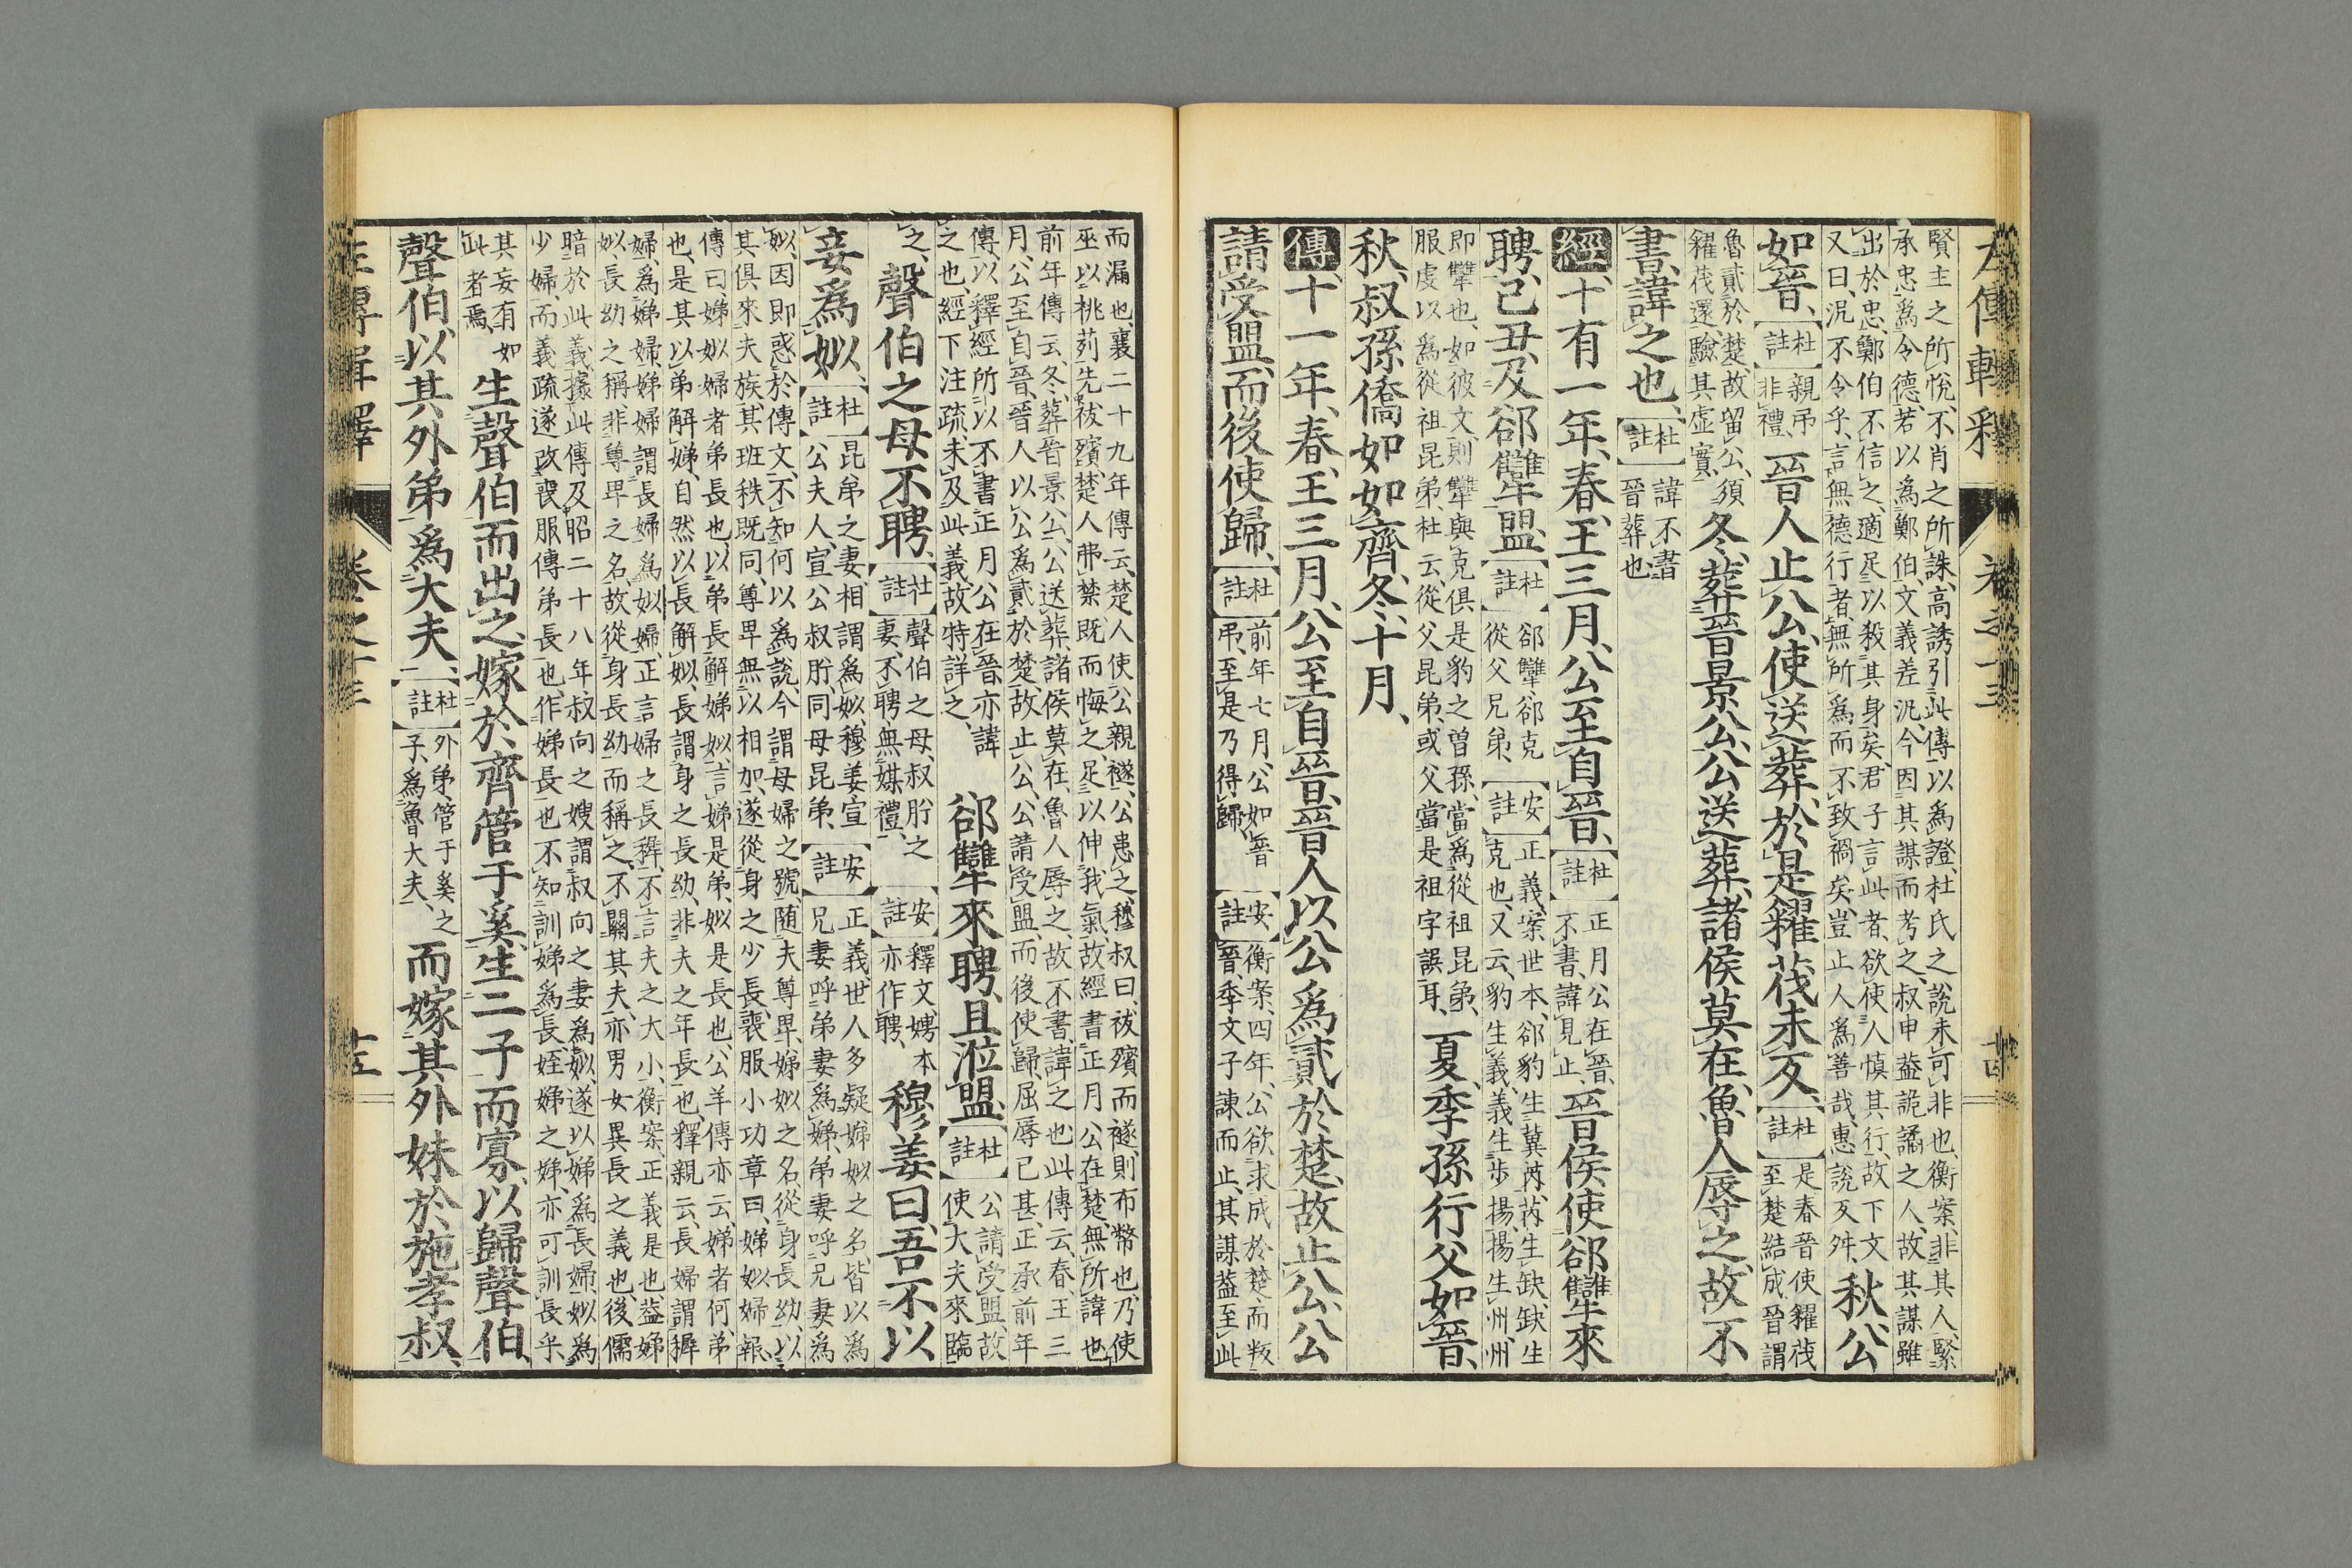 左傳輯釋 卷之十三 十四
賢主之所悅不肖之所誅高誘引此傳以爲證杜氏之說未可非也衡案非其人緊
承忠爲令德若以爲鄭伯文義差汎今因其謀而考之叔申葢詭譎之人故其謀雖
出於忠鄭伯不信之適足以殺其身矣君子言此者欲使人愼其行故下文
又曰況不令乎言無德行者無所爲而不致禍矣豈止人爲善哉惠說又舛秋公
如晉【杜註】親弔非禮晉人止公使送葬於是糴茷未反【杜註】是春晉使糴茷至楚結成晉謂
魯貳於楚故留公須糴茷還驗其虛實冬葬晉景公公送葬諸侯莫在魯人辱之故不
書諱之也【杜註】諱不書晉葬也
經十有一年春王三月公至自晉【杜註】正月公在晉不書諱見止晉侯使郤犨來
聘己丑及郤犨盟【杜註】郤犨郤克從父兄弟【安註】正義案世本郤豹生冀芮芮生缺缺生克也又云豹生義義生步揚揚生州州
即犨也如彼文則犨與克俱是豹之曾孫當爲從祖昆弟
服虔以爲從祖昆弟杜云從父昆弟或父當是祖字誤耳夏季孫行父如晉
秋叔孫僑如如齊冬十月
傳十一年春王三月公至自晉晉人以公爲貳於楚故止公公
請受盟而後使歸【杜註】前年七月公如晉弔至是乃得歸【安註】衡案四年公欲求成於楚而叛晉季文子諫而止其謀葢至此
而漏也襄二十九年傳云楚人使公親襚公患之穆叔曰祓殯而襚則布幣也乃使
巫以桃茢先祓殯楚人弗禁既而悔之足以伸我氣故經書正月公在楚無所諱也
前年傳云冬葬晉景公公送葬諸侯莫在魯人辱之故不書諱之也此傳云春王三
月公至自晉晉人以公爲貳於楚故止公公請受盟而後使歸屈辱已甚正承前年
傳以釋經所以不書正月公在晉亦諱之也經下注疏未及此義故特詳之郤犨來聘且涖盟【杜註】公請受盟故使大夫來臨
之聲伯之母不聘【杜註】聲伯之母叔肸之妻不聘無媒禮【安註】釋文娉本亦作聘穆姜曰吾不以
妾爲姒【杜註】昆弟之妻相謂爲姒穆姜宣公夫人宣公叔肸同母昆弟【安註】正義世人多疑娣姒之名皆以爲兄妻呼弟妻爲娣弟妻呼兄妻爲
姒因即惑於傳文不知何以爲說今謂母婦之號隨夫尊卑娣姒之名從身長幼以
其俱來夫族其班秩既同尊卑無以相加遂從身之少長喪服小功章曰娣姒婦報
傳曰娣姒婦者弟長也以弟長解娣姒言娣是弟姒是長也公羊傳亦云娣者何弟
也是其以弟解娣自然以長解姒長謂身之長幼非夫之年長也釋親云長婦謂稺
婦爲娣婦娣婦謂長婦爲姒婦正言婦之長稺不言夫之大小衡案正義是也葢娣
姒長幼之稱非尊卑之名故從身長幼而稱之不關其夫亦男女異長之義也後儒
暗於此義據此傳及昭二十八年叔向之嫂謂叔向之妻爲姒遂以娣爲長婦姒爲
少婦而義疏遂改喪服傳弟長也作娣長也不知訓娣爲長姪娣之娣亦可訓長乎
其妄有如此者焉生聲伯而出之嫁於齊管于奚生二子而寡以歸聲伯
聲伯以其外弟爲大夫【杜註】外弟管于奚之子爲魯大夫而嫁其外妹於施孝叔
左傳輯釋 卷之十三 十五